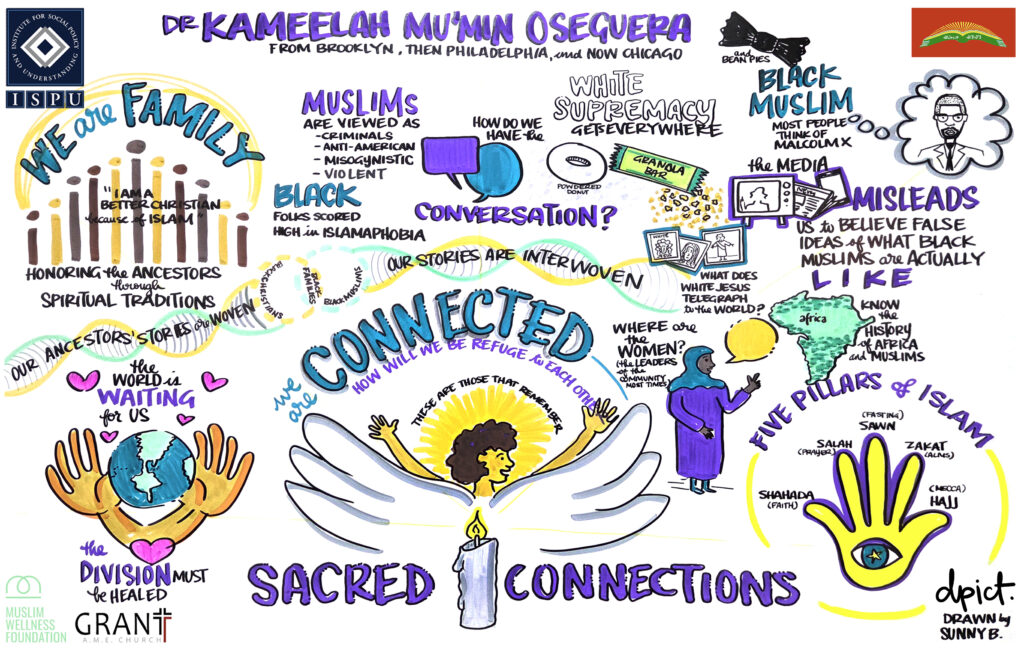 DR KAMEELAH MU'MIN OSEGUERA
FROM BROOKLYN, THEN PHILADELPHIA, and NOW CHICAGO
INSTITUTE FOR SOCIAL POLICY AND UNDERSTANDING
ISPU
WE are FAMILY
"I AM A
BETTER CHRISTIAN
because of ISLAM"
HONORING the ANCESTORS
through
SPIRITUAL TRADITIONS
MUSLIMS
ARE VIEWED AS
- CRIMINALS
- ANTI-AMERICAN
- MISOGYNISTIC
- VIOLENT
BLACK
FOLKS SCORED
HIGH in ISLAMAPHOBIA
HOW DO WE
HAVE the
CONVERSATION?
WHITE
SUPREMACY
GETS EVERYWHERE
POWDERED
DONUT
GRANOLA
BAR
and
BEAN PIES
BLACK
MUSLIM
MOST PEOPLE
THINK OF
MALCOLM X
the MEDIA
NEWS
MISLEADS
US to BELIEVE FALSE
IDEAS of WHAT BLACK
MUSLIMS are ACTUALLY
LIKE
WHITE
WHAT DOES
WHITE JESUS
TELEGRAPH
to the WORLD?
OUR ANCESTORS' STORIES are WOVEN
BLACK CHRISTIANS
BLACK
FAMILIES
BLACK MUSLIMS
OUR STORIES ARE INTERWOVEN
we are
CONNECTED
HOW WILL WE BE REFUGE to EACH OTHER
THESE ARE THOSE THAT REMEMBER
WHERE are
the
WOMEN?
(the LEADERS
of the
COMMUNITY
MOST TIMES)
africa
KNOW
the
HISTORY
of AFRICA
and MUSLIMS
the
WORLD is
WAITING
for US
the
DIVISION MUST
be HEALED
FIVE PILLARS of ISLAM
(FASTING)
SAWN
SALAH
(PRAYER)
ZAKAT
(ALMS)
SHAHADA
(FAITH)
(MECCA)
HAJJ
SACRED CONNECTIONS
MUSLIM
WELLNESS
FOUNDATION
GRANT
A.M.E. CHURCH
dpict.
DRAWN by
SUNNY B.